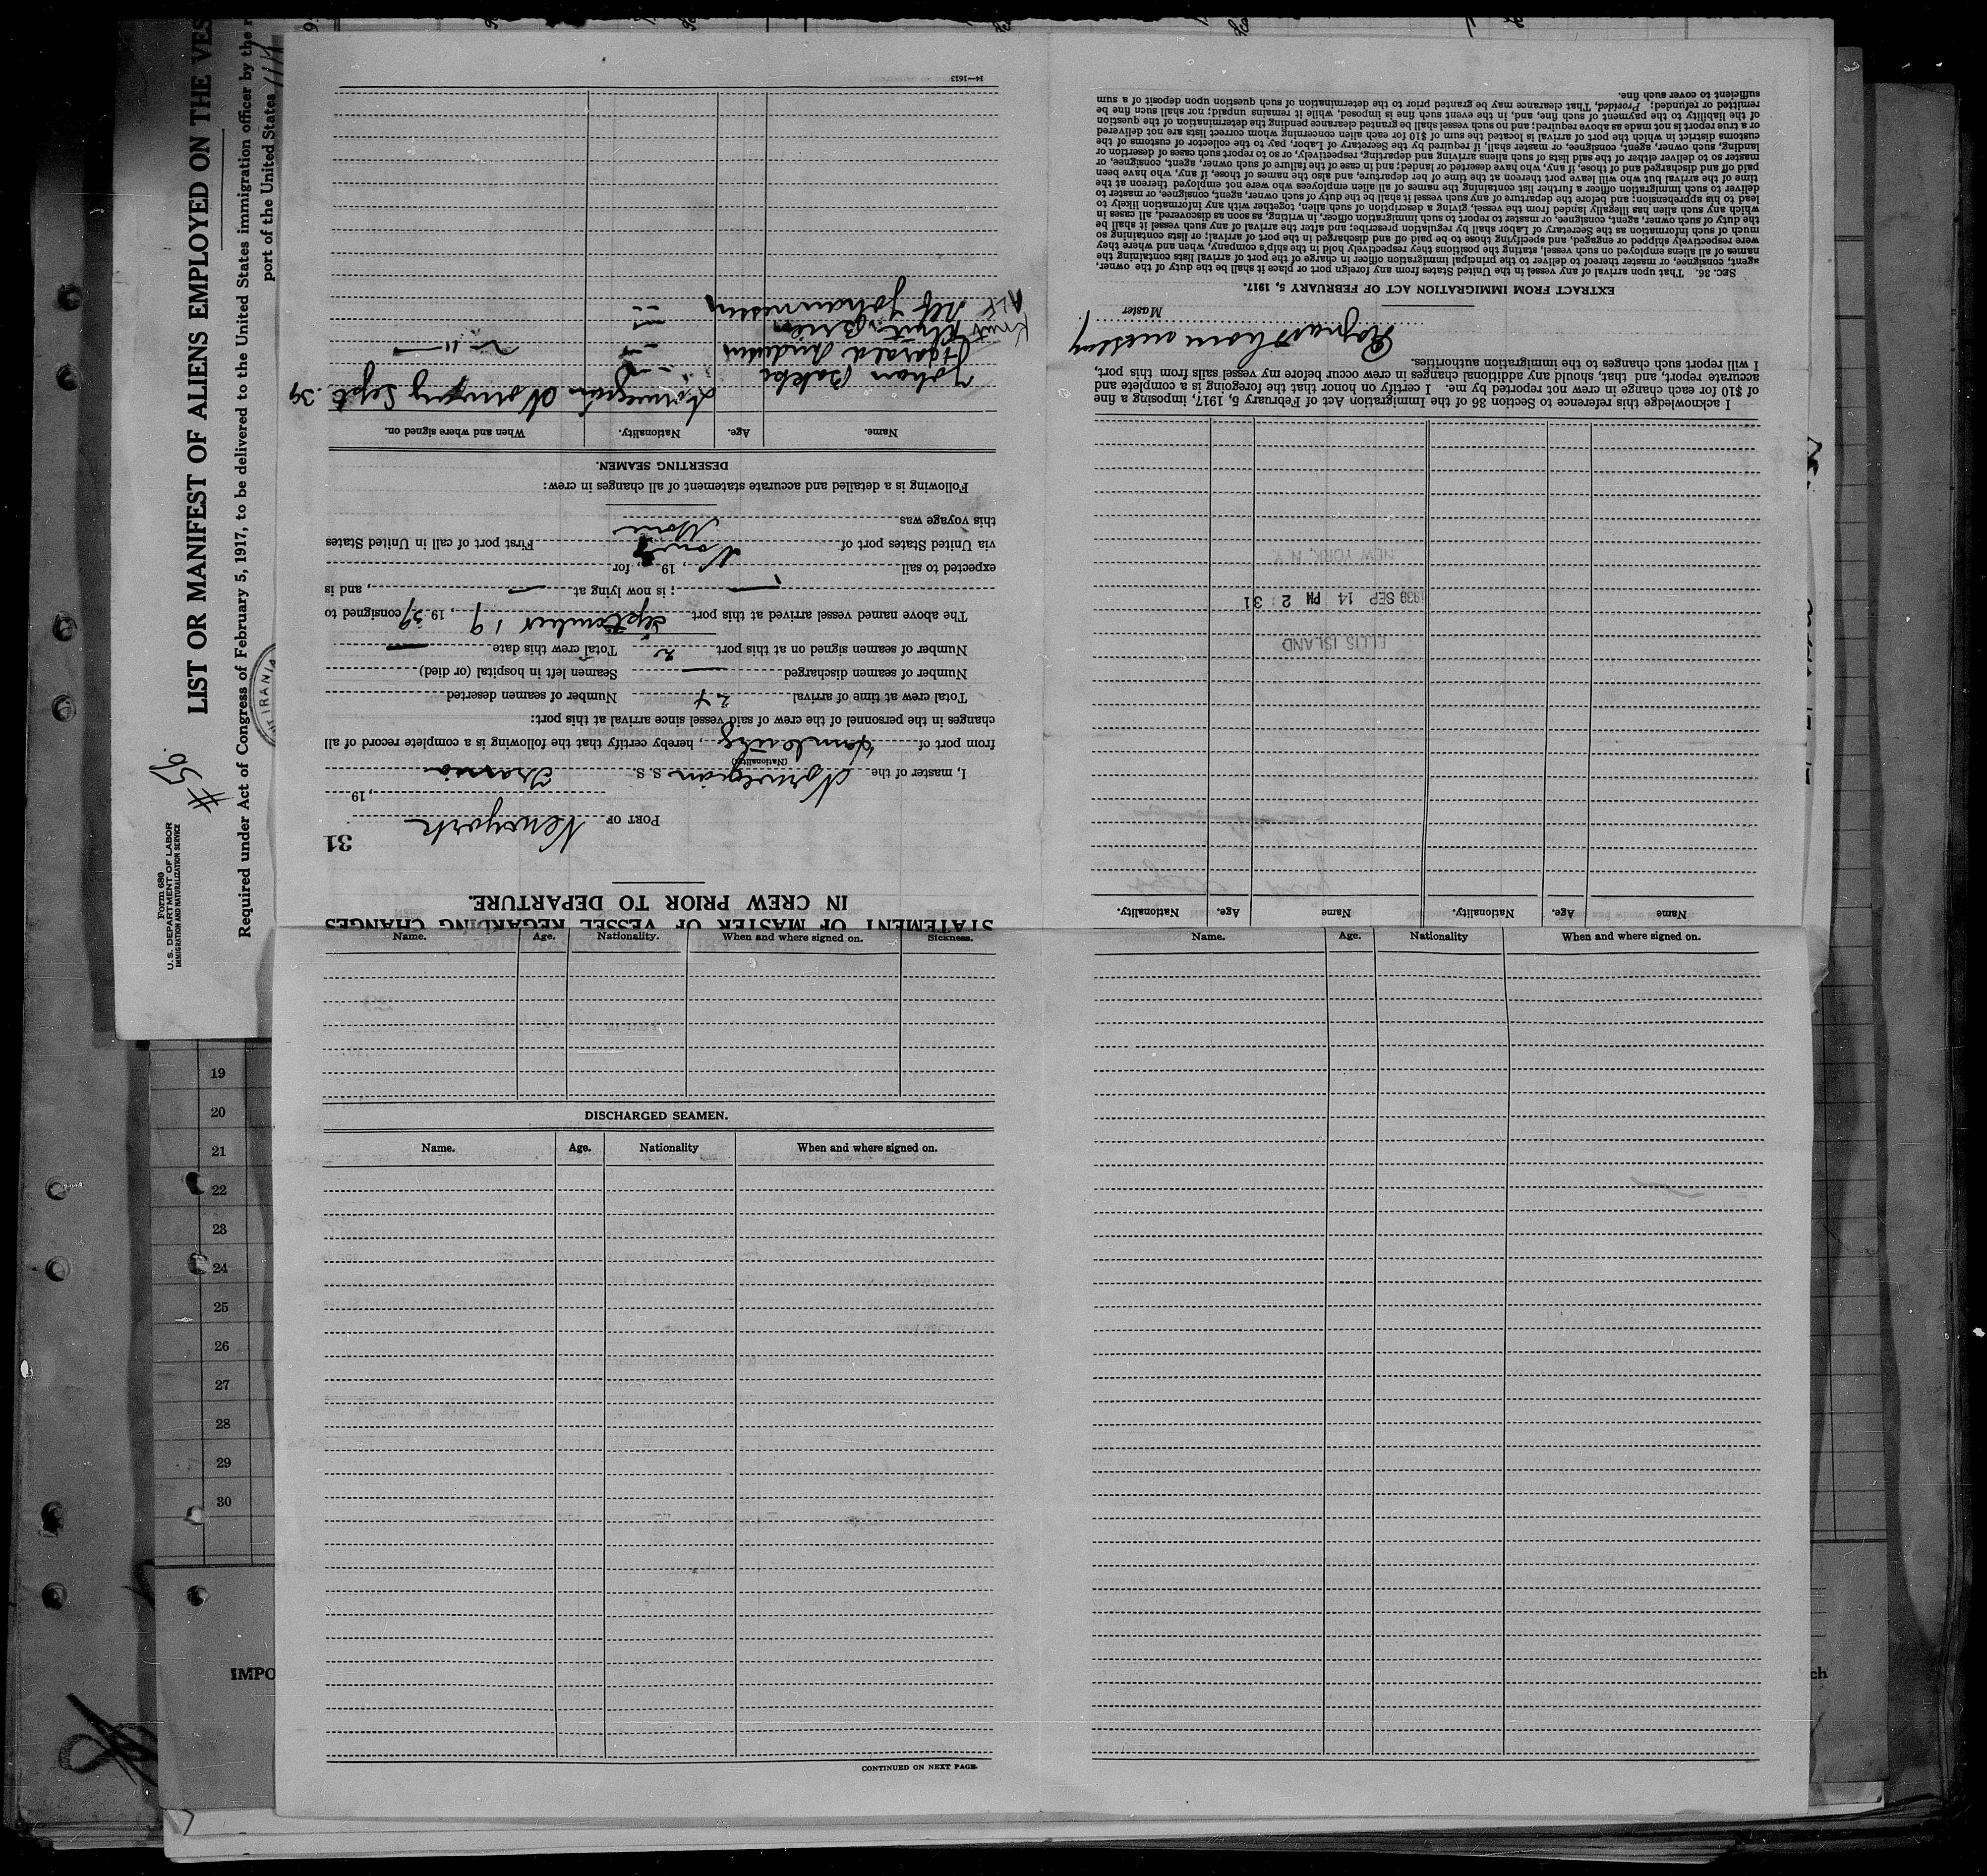 Form 680
U. S. DEPARTMENT OF LABOR
IMMIGRATION AND NATURALIZATION SERVICE
#50.
LIST OR MANIFEST OF ALIENS EMPLOYED ON THE VES
Required under Act of Congress of February 5, 1917, to be delivered to the United States immigration officer by the r
port of the United States
STATEMENT OF MASTER OF VESSEL REGARDING CHANGES
IN CREW PRIOR TO DEPARTURE.
31
PORT OF Newyork, 19
I, master of the Norwegian S. S.
(Nationality)
from port of, hereby certify that the following is a complete record of all
changes in the personnel of the crew of said vessel since arrival at this port:
Total crew at time of arrival Number of seamen deserted
Number of seamen discharged — Seamen left in hospital (or died)
Number of seamen signed on at this port 2 Total crew this date —
The above named vessel arrived at this port September 19, 1939 consigned to
— ; is now lying at —, and is
expected to sail, 19, for
via United States port of First port of call in United States
this voyage was None
Following is a detailed and accurate statement of all changes in crew:
DESERTING SEAMEN.
Name. Age. Nationality. When and where signed on.
Norwegian Sept. 39
Johan Bakke
Harald Andersen — " —
Knut
Alf Johannessen
14—1613
Name Age. Nationality. Name Age. Nationality.
ELLIS ISLAND
1939 SEP 14 PM 2 31
NEW YORK, N. Y.
I acknowledge this reference to Section 36 of the Immigration Act of February 5, 1917, imposing a fine
of $10 for each change in crew not reported by me. I certify on honor that the foregoing is a complete and
accurate report, and that, should any additional changes in crew occur before my vessel sails from this port,
I will report such changes to the immigration authorities.
Master
EXTRACT FROM IMMIGRATION ACT OF FEBRUARY 5, 1917.
SEC. 36. That upon arrival of any vessel in the United States from any foreign port or place it shall be the duty of the owner,
agent, consignee, or master thereof to deliver to the principal immigration officer in charge of the port of arrival lists containing the
names of all aliens employed on such vessel, stating the positions they respectively hold in the ship's company, when and where they
were respectively shipped or engaged, and specifying those to be paid off and discharged in the port of arrival; or lists containing so
much of such information as the Secretary of Labor shall by regulation prescribe; and after the arrival of any such vessel it shall be
the duty of such owner, agent, consignee, or master to report to such immigration officer, in writing, as soon as discovered, all cases in
which any such alien has illegally landed from the vessel, giving a description of such alien, together with any information likely to
lead to his apprehension; and before the departure of any such vessel it shall be the duty of such owner, agent, consignee, or master to
deliver to such immigration officer a further list containing the names of all alien employees who were not employed thereon at the
time of the arrival but who will leave port thereon at the time of her departure, and also the names of those, if any, who have been
paid off and discharged and of those, if any, who have deserted or landed; and in case of the failure of such owner, agent, consignee, or
master so to deliver either of the said lists of such aliens arriving and departing, respectively, or so to report such cases of desertion or
landing, such owner, agent, consignee, or master shall, if required by the Secretary of Labor, pay to the collector of customs of the
customs district in which the port of arrival is located the sum of $10 for each alien concerning whom correct lists are not delivered
or a true report is not made as above required; and no such vessel shall be granted clearance pending the determination of the question
of the liability to the payment of such fine, and, in the event such fine is imposed, while it remains unpaid; nor shall such fine be
remitted or refunded; Provided, That clearance may be granted prior to the determination of such question upon deposit of a sum
sufficient to cover such fine.
Name. Age. Nationality. When and where signed on. Sickness.
DISCHARGED SEAMEN.
Name. Age. Nationality When and where signed on.
CONTINUED ON NEXT PAGE.
Name. Age. Nationality When and where signed on.
19
20
21
22
23
24
25
26
27
28
29
30
IMPO
ch